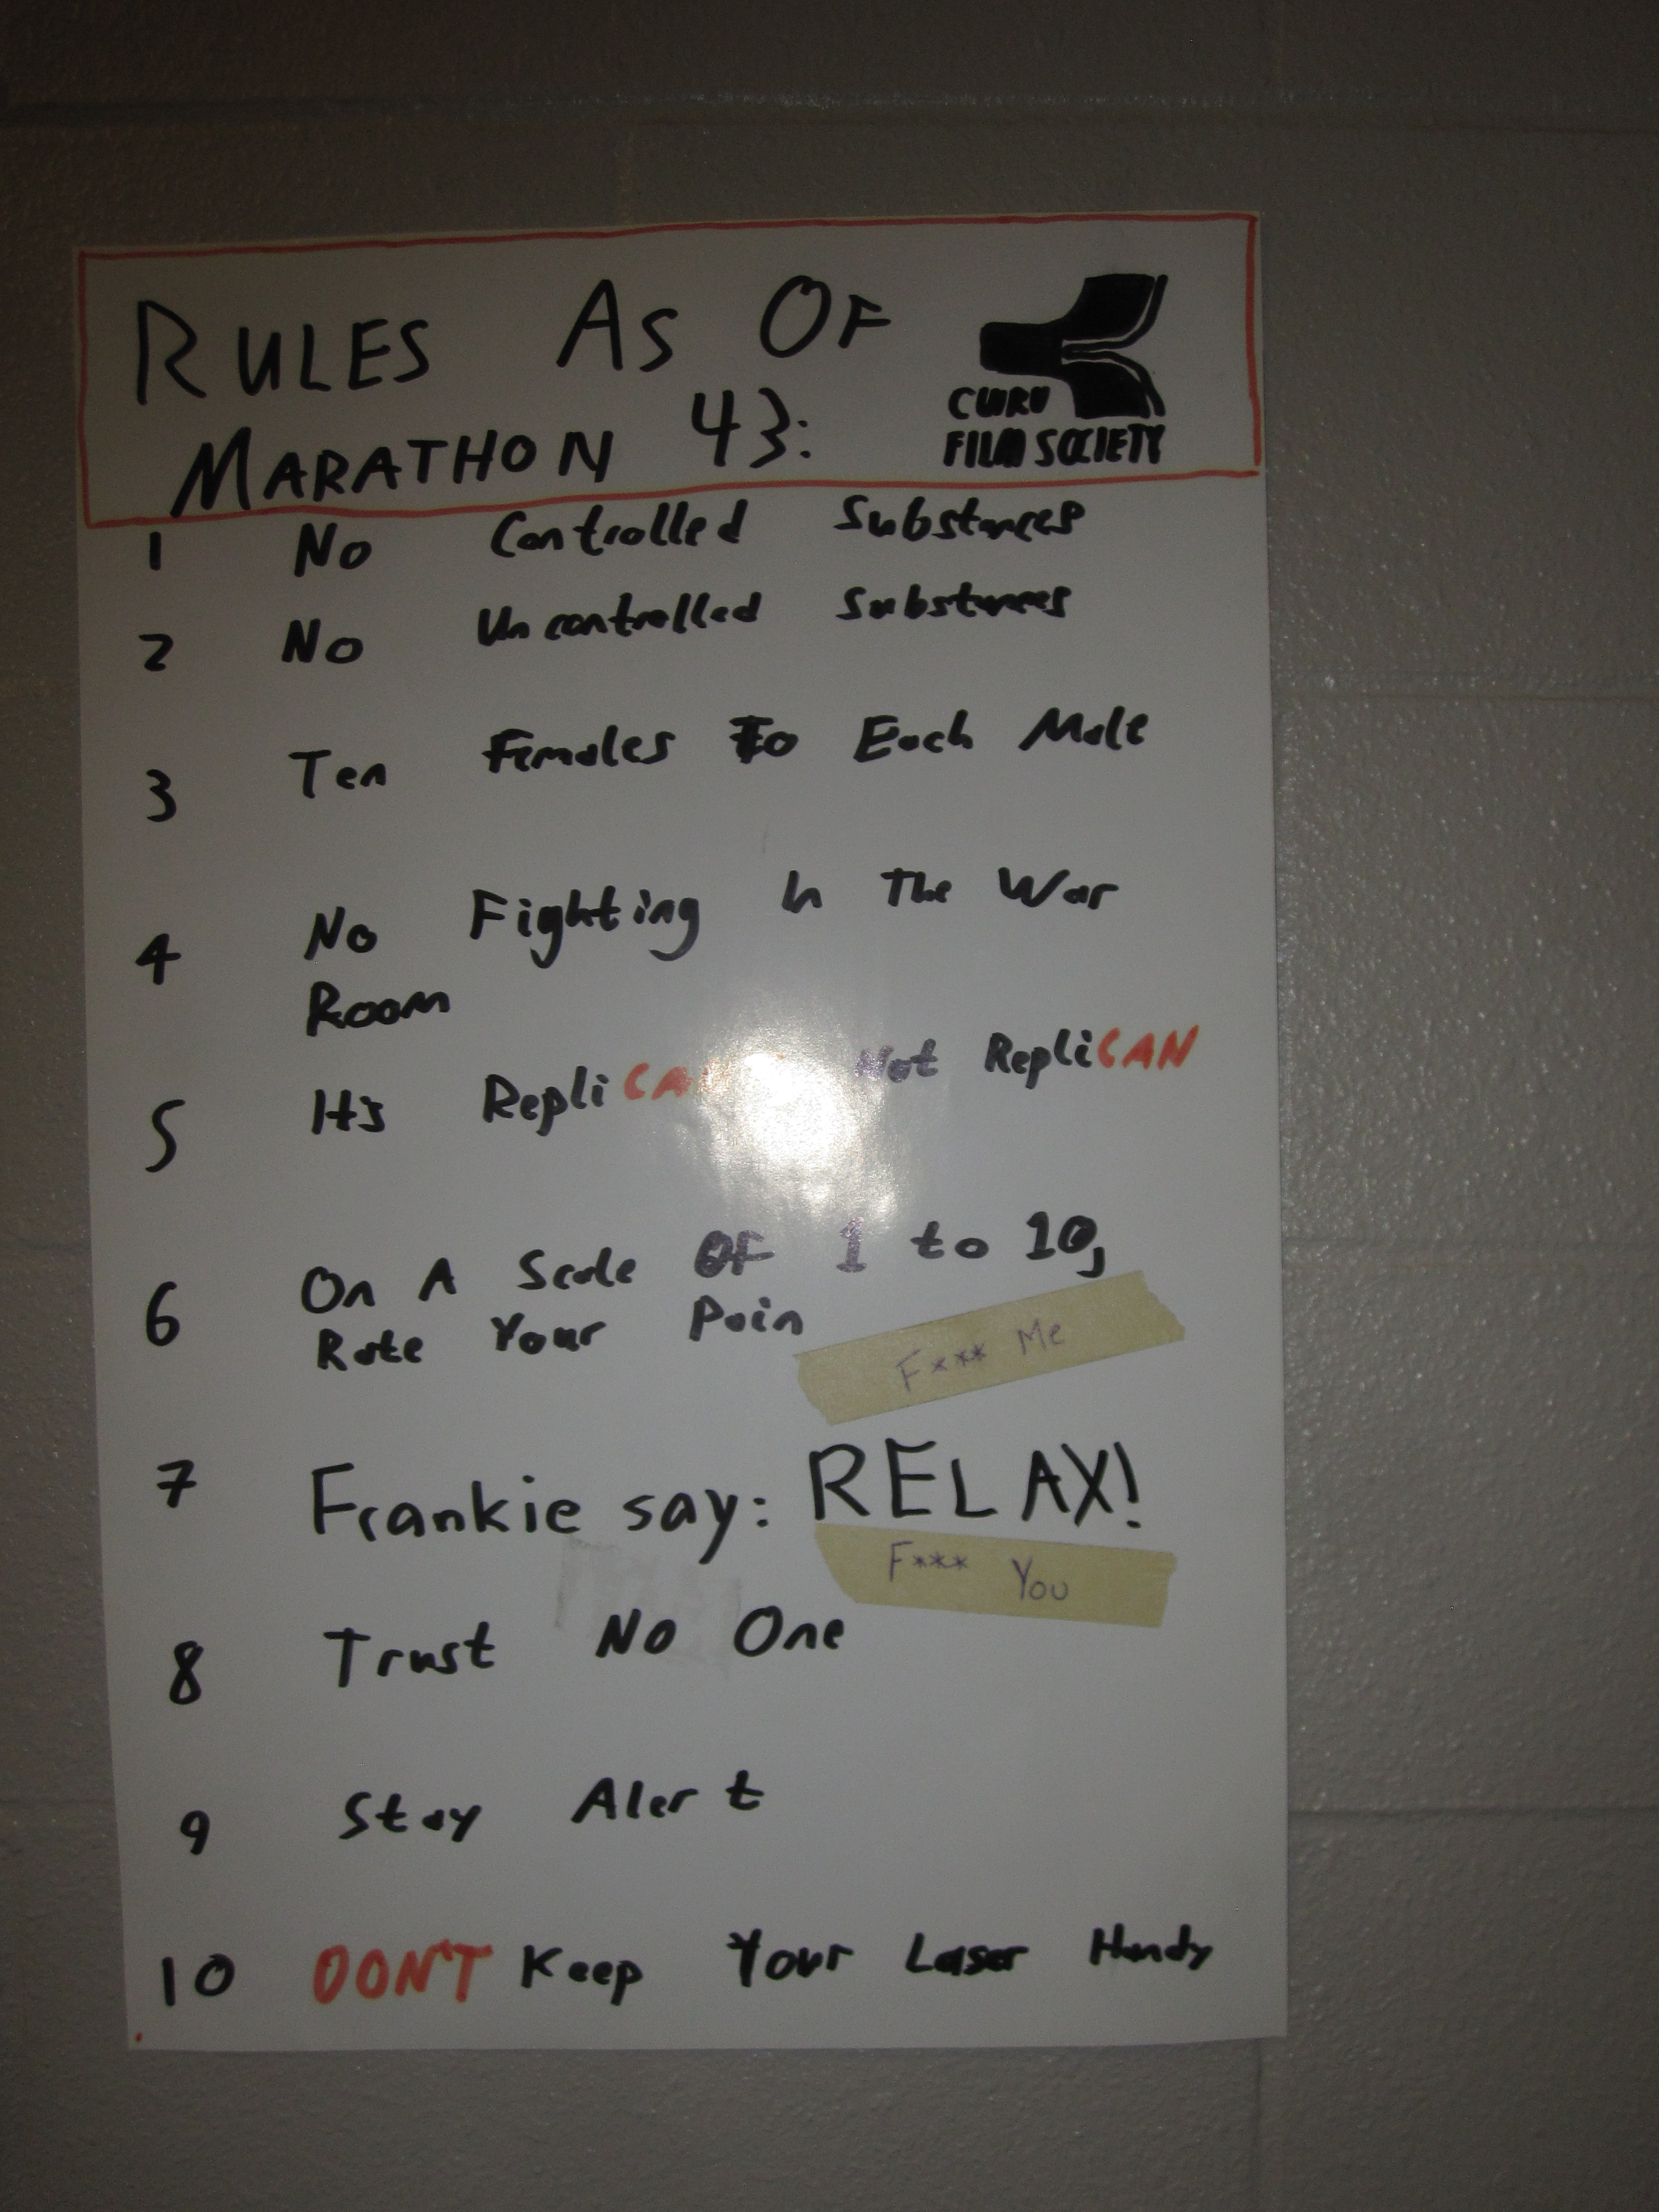 RULES AS OF
MARATHON 43:
CWRU
FILM SOCIETY
1 No Controlled Substances
2 No Uncontrolled Substances
3 Ten Females To Each Male
4 No Fighting In The War
Room
5 It's Repli Not RepliCAN
6 On A Scale OF 1 to 10,
Rate Your Pain
F*** Me
7 Frankie say: RELAX!
F*** You
8 Trust No One
9 Stay Alert
10 DON'T Keep Your Laser Handy